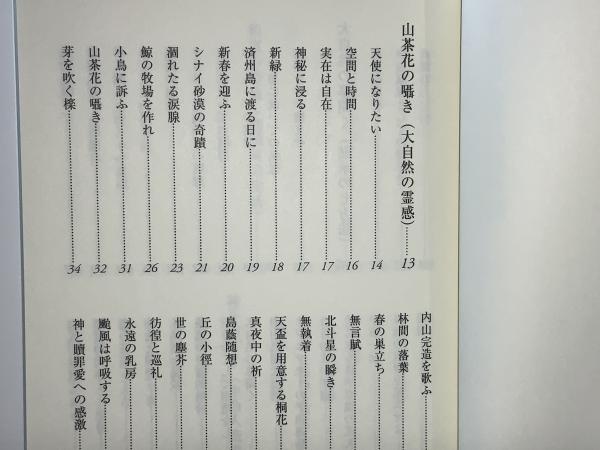 山茶花の囁き（大自然の霊感）……13
天使になりたい……14
空間と時間……16
実在は自在……17
神秘に浸る……17
新緑……18
済州島に渡る日に……19
新春を迎ふ……20
シナイ砂漠の奇蹟……21
涸れたる涙腺……23
鯨の牧場を作れ……26
小鳥に訴ふ……31
山茶花の囁き……32
芽を吹く檪……34
内山完造を歌ふ……
林間の落葉……
春の巣立ち……
無言賦……
北斗星の瞬き……
無執着……
天盃を用意する桐花……
真夜中の祈……
島蔭随想……
丘の小徑……
世の塵芥……
彷徨と巡礼……
永遠の乳房……
颱風は呼吸する……
神と贖罪愛への感激……